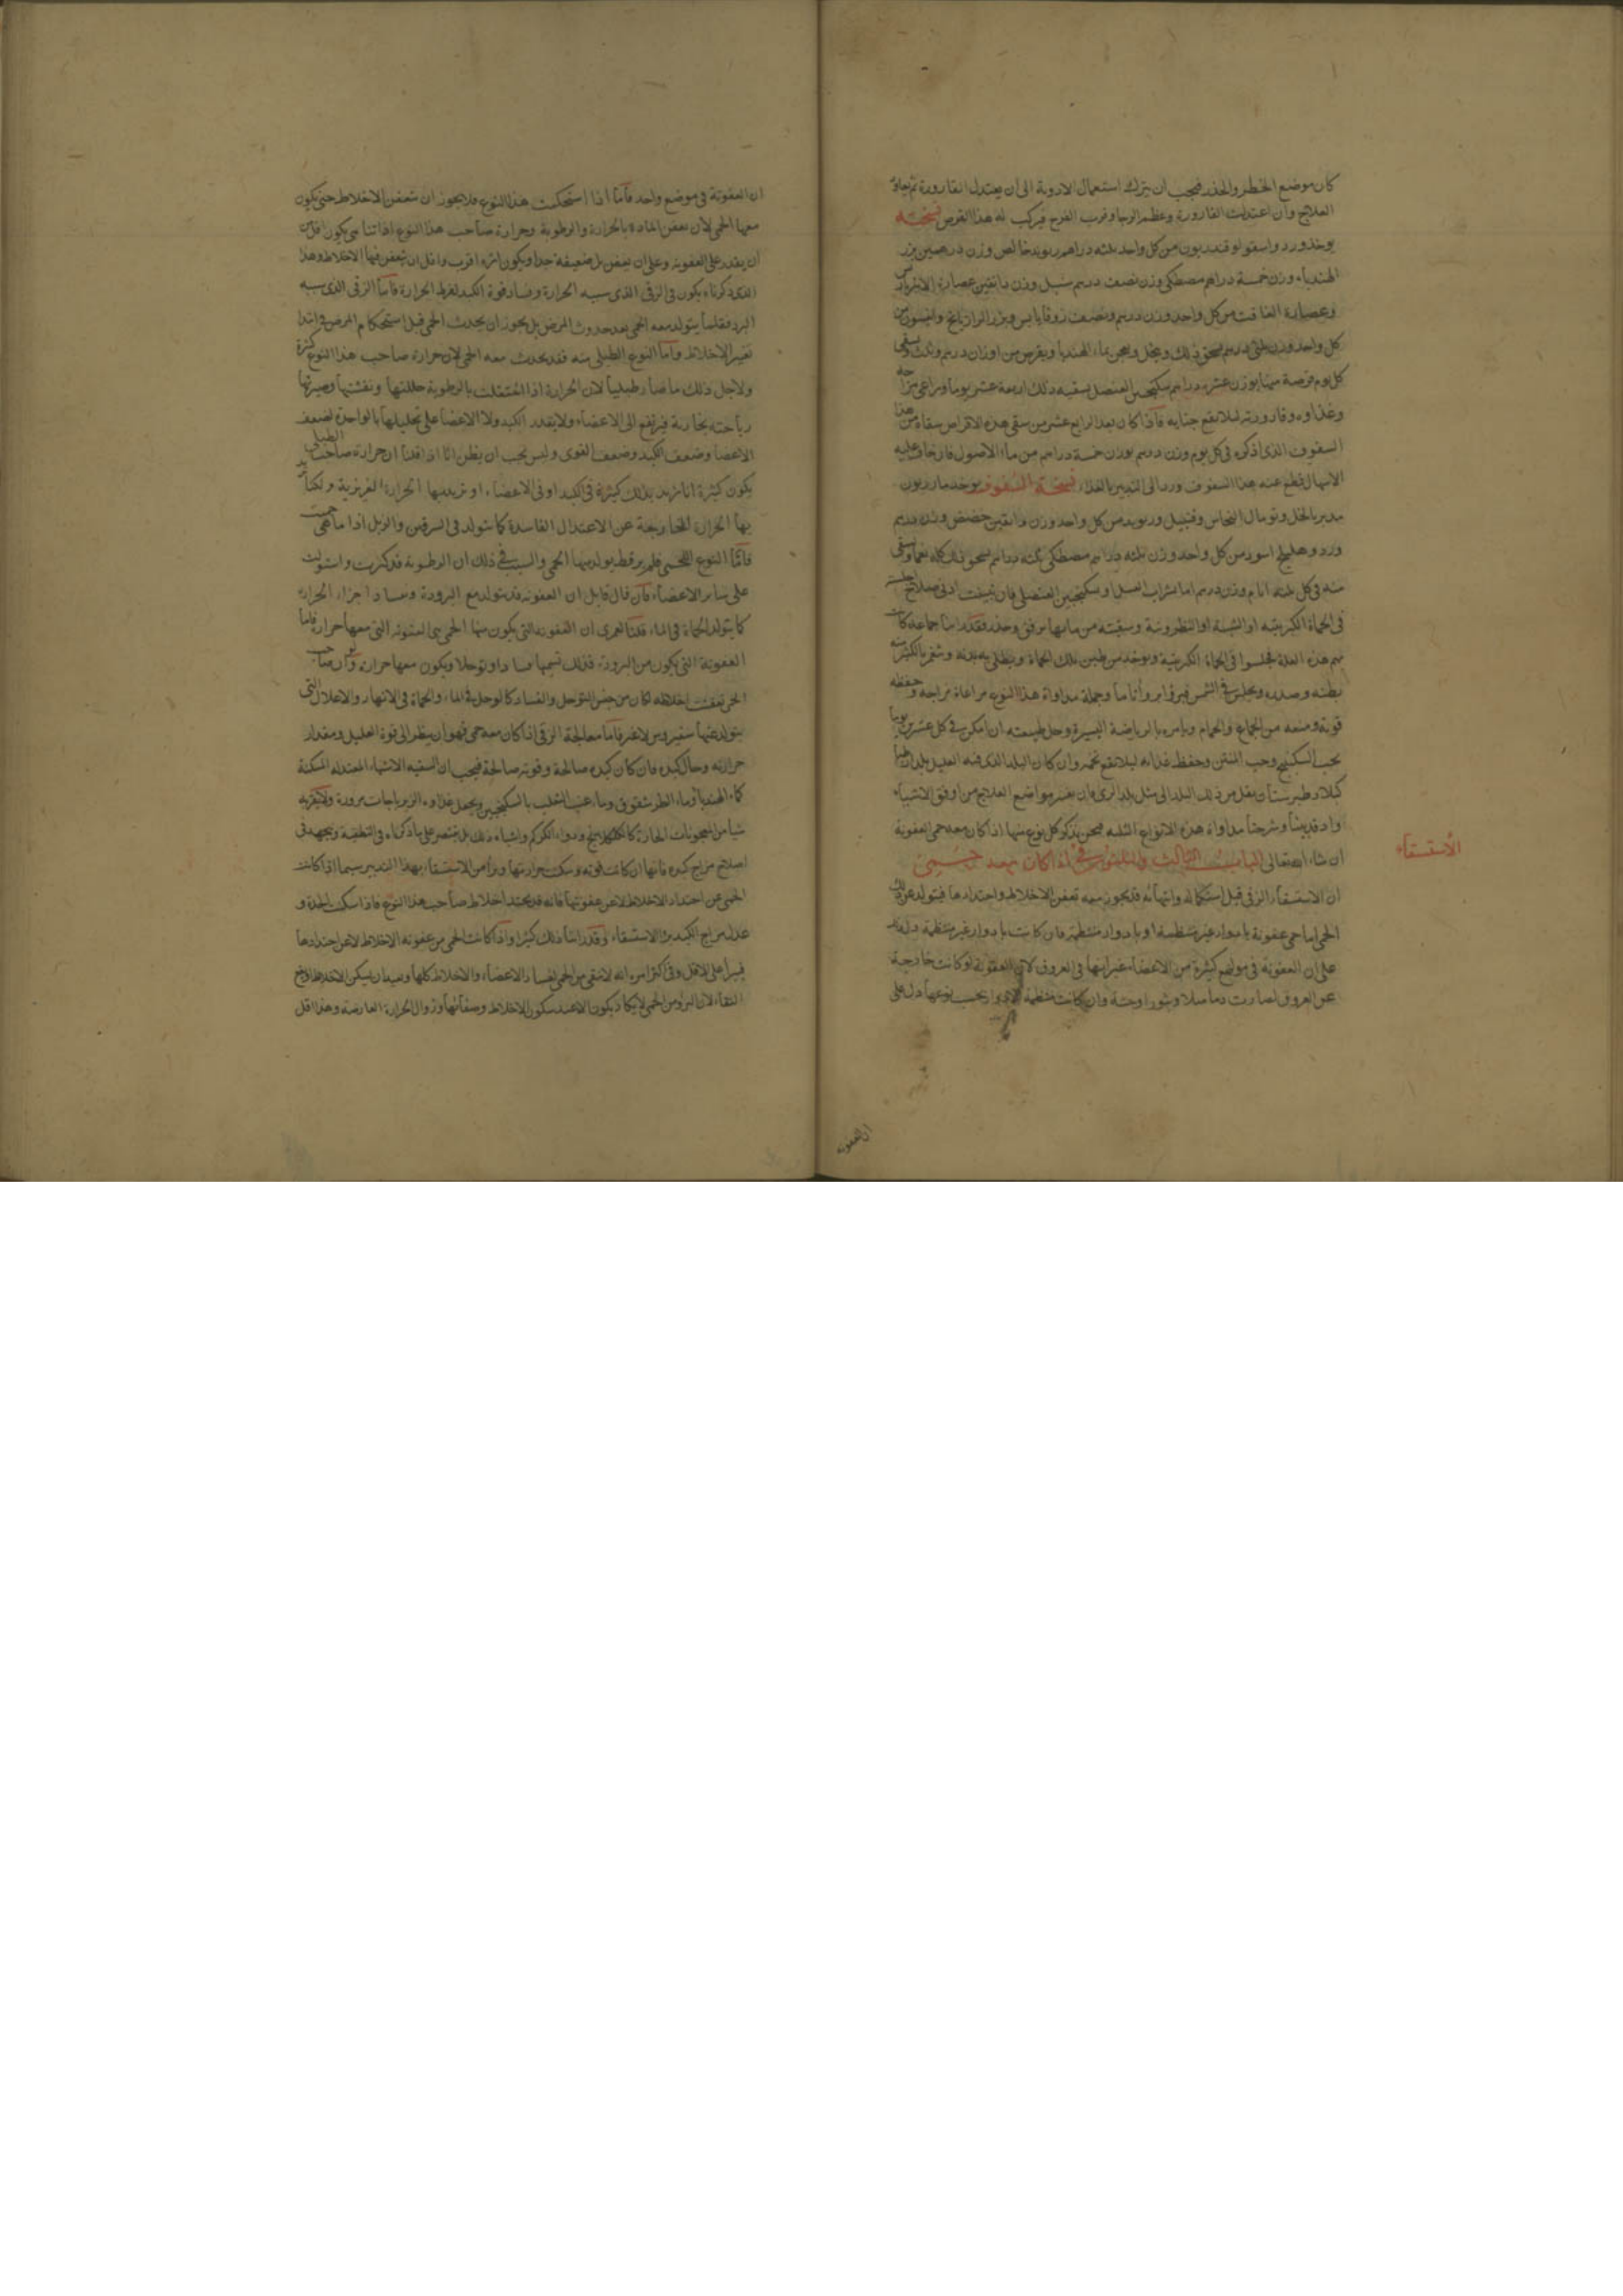 كان موضع الخطر والحذر فيجب ان يترك استعمال الادوية الى ان يعتدل القارورة ثم يعاود
العلاج وان اعتدلت القارورة وعظم الرجا وقرب الفرج فيركب له هذا القرص نسخته
يوخذ ورد واسقولوقندريون من كل واحد ثلثه دراهم ريوند خالص وزن درهمين بزر
الهندباء وزن خمسة دراهم مصطكى وزن نصف درهم سنبل وزن دانقين عصارة
وعصارة الغافت من كل واحد وزن درهم ونصف زوفا يابس وبزر الرازيانج وانيسون من
كل واحد وزن ثلثى درهم يسحق ذلك وينخل ويعجن بماء الهندبا ويقرص من اوزان درهم وثلث ويسقى
كل يوم قرصة منها بوزن عشره دراهم سكنجبين العنصل يسقيه ذلك اربعة عشر يوما ويراعى مزاجه
وغذاوه وقارورته لئلا تقع جنايه فاذا كان بعد الرابع عشر من سقى هذه الاقراص سقاه من هذا
السفوف الذى اذكره فى كل يوم وزن درهم بوزن خمسة دراهم من ماء الاصول فان خاف عليه
الاسهال قطع عنه هذا السفوف ورد الى التدبير بالغذاء نسخة السفوف يوخذ مازريون
مدبر بالخل وتوبال النحاس من كل واحد وزن دانقين حضض وزن درهم
ورد وهليلج اسود من كل واحد وزن ثلثه دراهم مصطكى ثلثه دراهم يسحق ذلك كله نعما ويسقى
منه فى كل ثلثه ايام وزن درهم اما بشراب العسل او سكنجبين العنصلى فان تبينت ادنى صلاح
فى الحماة الكبريتيه او الشبية او النطرونية وسقيته من مايها برفق وحذر فقد راينا جماعة كانت
بهم هذه العلة فجلسوا فى الحماة الكبريتية ويوخذ من طين تلك الحماة ويطلى به بدنه
بطنه وصدره ويجلس فى الشمس وجملة مداواة هذا النوع مراعاة مزاجه وحفظه
قوته ومنعه من الجماع والحمام ويامره بالرياضة اليسيرة وحل طبيعته ان امكن فى كل عشرين يوما
بحب السكبينج وحب المنتن وحفظ غذاءه ليلا تقع تخمه وان كان البلد الذى فيه العليل بلدا رطبا
كبلاد طبرستان ينقل من ذلك البلد الى مثل بلد الرى فان تغير مواضع العلاج من اوفق الاشياء
واذ قد بينا وشرحنا مداواة هذه الانواع الثلثه فنحن نذكر كل نوع منها اذا كان معه حمى العفونة
ان شاء الله تعالى الباب الثالث والثلثون فى اذا كان معه حمى
الاستسقاء
ان الاستسقاء الزقى قبل استكماله وانتهائه قد يجوز معه تعفن الاخلاط واحتدادها فيتولد عن ذلك
الحمى اما حمى عفونة بادوار غير منتظمة او بادوار منتظمة فان كانت بادوار غير منتظمة دل
على ان العفونة فى مواضع كثيرة من الاعضاء غير انها فى العروق لان العفونة لو كانت خارجة
عن العروق لصارت دماملا وبثورا وان كانت منتظمة الادوار بحسب نوعها دل على
ان العفونه
ان العفونة فى موضع واحد فأما اذا استحكمت هذا النوع فلا يجوز ان تتعفن الاخلاط حتى يكون
معها الحمى لان تعفن المادة بالحرارة والرطوبة وحرارة صاحب هذا النوع اذا تناهى يكون اقل من
ان يقدر على العفونة وعلى ان تعفن بل ضعيفة جدا ويكون اثره اقرب واقل ان تتعفن فيها الاخلاط وهذا
الذى ذكرناه يكون فى الزقى الذى سببه الحرارة وفساد قوة الكبد لفرط الحرارة فاما الزقى الذى سببه
البرد فقلما يتولد معه الحمى بعد حدوث المرض بل يجوز ان يحدث الحمى قبل استحكام المرض فى ابتدا
تغير الاخلاط واما النوع الطبلى منه فقد يحدث معه الحمى لان حرارة صاحب هذا النوع كثرة
ولاجل ذلك ما صار طبليا لان الحرارة اذا اشتعلت بالرطوبة حللتها وصيرتها
رياحا بخارية فيرتفع الى الاعضاء ولا يقدر الكبد ولا الاعضا على تحليلها بالواحدة لضعف
الاعضا وضعف الكبد وضعف القوى وليس يجب ان يظن انا اذا قلنا ان حرارة صاحب الطبلى
يكون كثيرة انا نريد بذلك كثيرة فى الكبد او فى الاعضاء او نريد بها الحرارة الغريزية ولكنا نريد
بها الحرارة الخارجة عن الاعتدال الفاسدة كما يتولد فى السرقين والزبل اذا ما هى حميت
فاما النوع اللحمى فلم ير قط يولد منها الحمى والسبب فى ذلك ان الرطوبة قد كثرت واستولت
على ساير الاعضاء فان قال قايل ان العفونة قد يتولد مع البرودة وفساد اجزاء الحرارة
كما يتولد الحماة فى الماء قلنا لعمرى ان العفونه التى يكون منها الحمى هى العفونه التى معها حرارة فاما
العفونة التى يكون من البرودة فذلك نسميها فسادا وتوحلا ويكون معها حرارة
الحمى تعفنت اخلاطه لكان من جنس التوحل والفساد كالوحل فى الماء والحماة فى الانهار والاعلال التى
يتولد عنها سقيروس لا غير فاما معالجة الزقى اذا كان معه حمى فهو ان ينظر الى قوة العليل ومقدار
حرارته وحال كبده فان كان كبده صالحة وقوته صالحة فيجب ان نسقيه الاشياء المعتدله المسكنة
كماء الهندبا وماء الطرشقوق وماء عنب الثعلب بالسكنجبين ويجعل غذاوه الزيرباجات مزورة ولا يقربه
شيا من المعجونات الحارة كالكلكلانج ودواء الكركم واشباه ذلك بل يقتصر على ما ذكرناه فى التطفية ويجهد فى
اصلاح مزاج كبده فانها ان كانت قويه وسكنت حرارتها وبرا من الاستسقاء بهذا التدبير سيما اذا كانت
الحمى عن احتداد الاخلاط لا عن عفونتها فانه قد يحتد اخلاط صاحب هذا النوع فاذا سكنت الحدة و
عدل مزاج الكبد برئ الاستسقاء وقد راينا ذلك كثيرا واذا كانت الحمى من عفونة الاخلاط لا عن احتدادها
فيبرا على الاقل وفى اكثر امره انه لا ينقى من الحمى لفساد الاعضاء والاخلاط كلها وبعيد ان يسكن الاخلاط
النقاء لان البرؤ من الحمى لا يكاد يكون الا عند سكون الاخلاط وصفائها وزوال الحرارة العارضة وهذا اقل